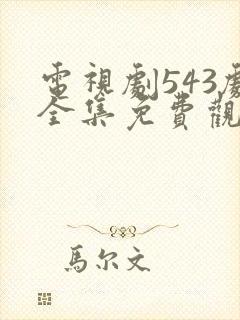 電視劇543劇
全集免費觀
馬尔文